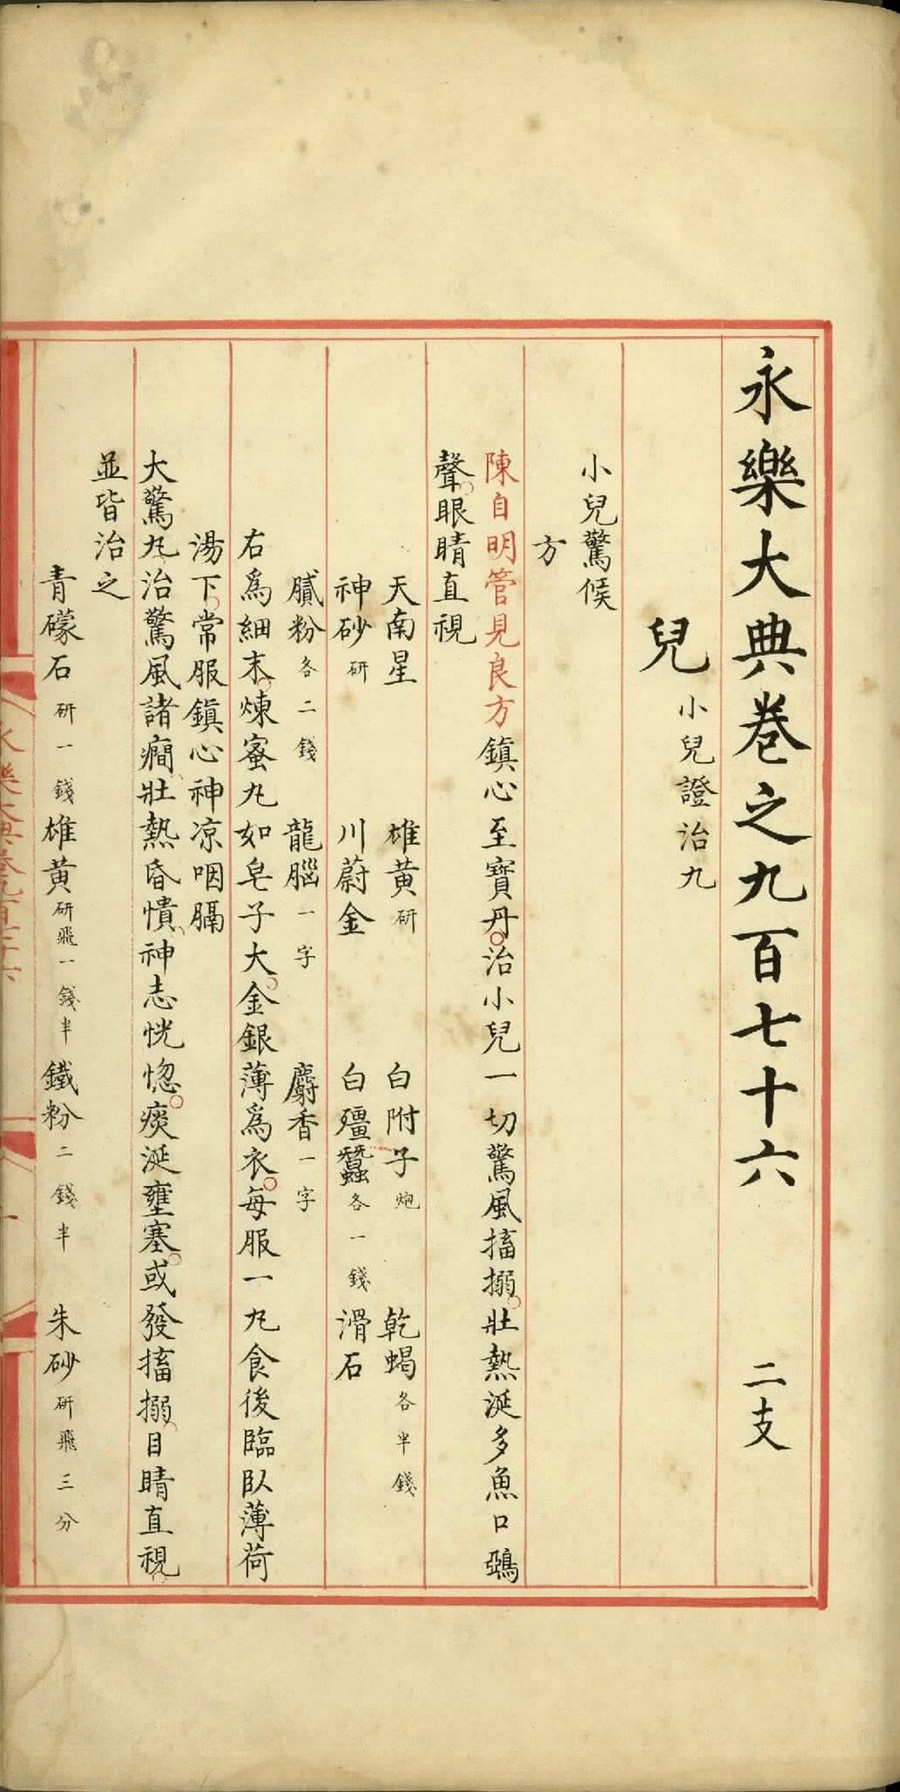 永樂大典卷之九百七十六 二支
兒 小兒證治九
小兒驚候
方
陳自明管見良方鎮心至寶丹治小兒一切驚風搐搦壯熱涎多魚口鵶
聲眼睛直視
天南星 雄黃研 白附子炮 乾蝎各半錢
神砂研 川蔚金 白殭蠶各一錢 滑石
膩粉各二錢 龍腦一字 麝香一字
右為細末煉蜜丸如皂子大金銀薄為衣每服一丸食後臨臥薄荷
湯下常服鎮心神凉咽膈
大驚丸治驚風諸癇壯熱昏憒神志恍惚痰涎壅塞或發搐搦目睛直視
並皆治之
青礞石研一錢 雄黃研飛一錢半 鐵粉二錢半 朱砂研飛三分